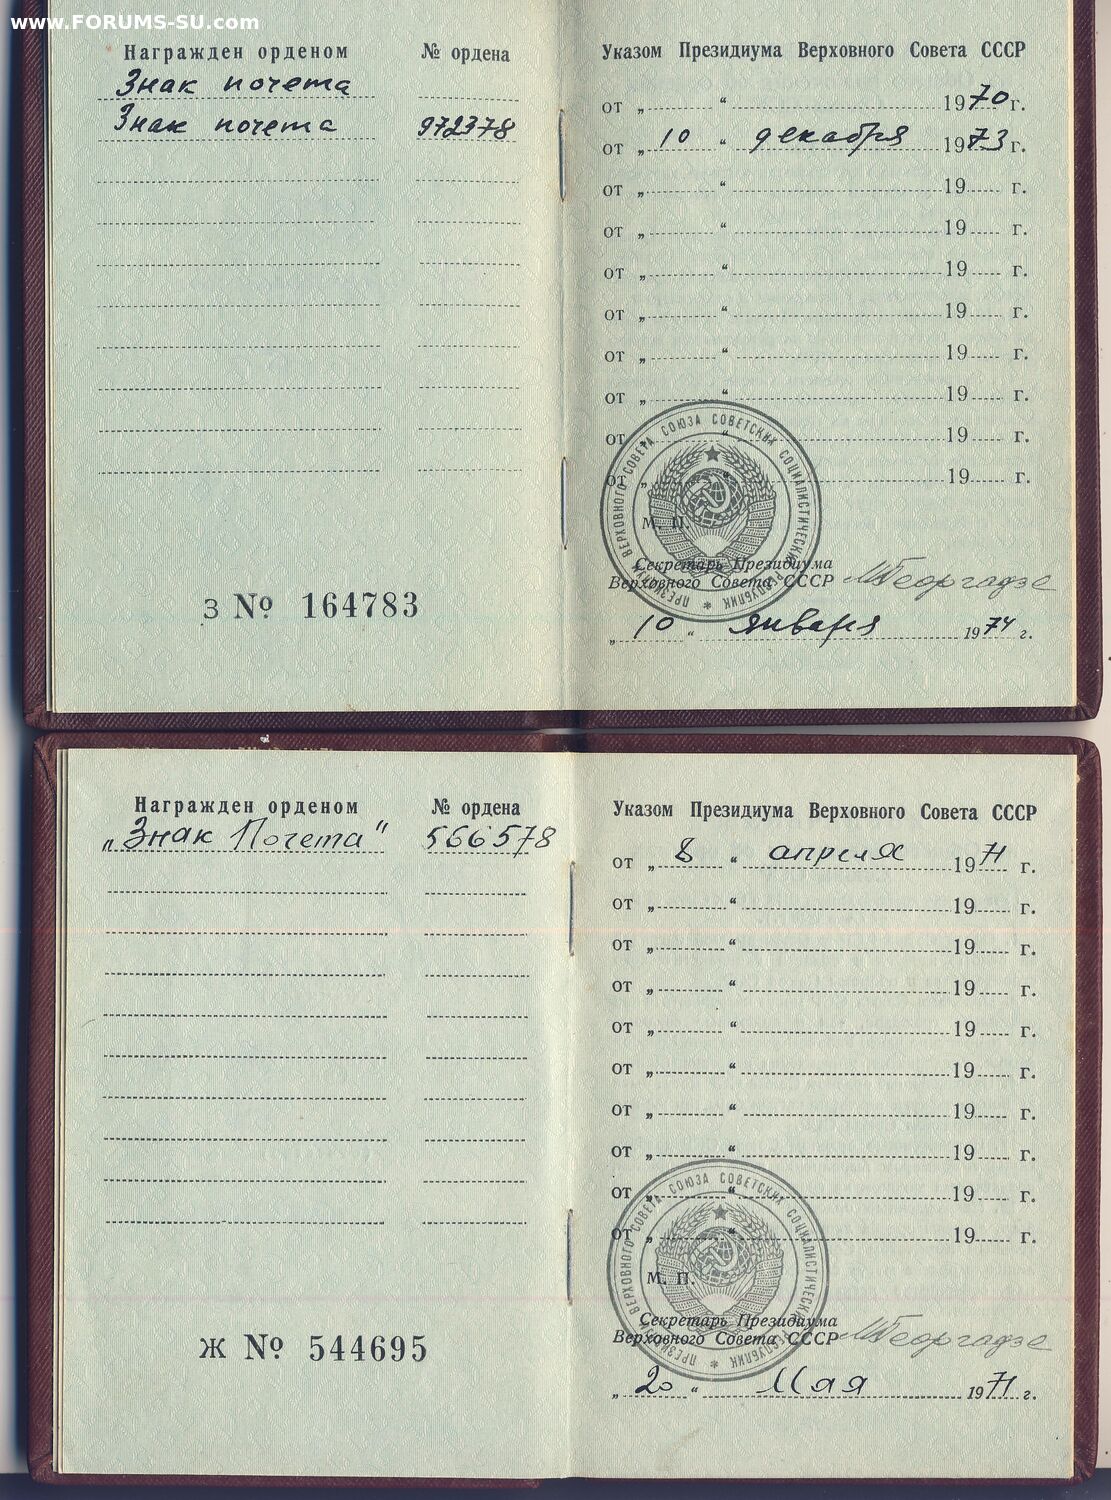 www.FORUMS-SU.com
Награжден орденом № ордена
Знак почета
Знак почета 972378
З № 164783
Указом Президиума Верховного Совета СССР
от „ “ 1970 г.
от „ 10 “ декабря 1973 г.
от „ “ 19 г.
от „ “ 19 г.
от „ “ 19 г.
от „ “ 19 г.
от „ “ 19 г.
от „ “ 19 г.
от „ “ 19 г.
от „ “ 19 г.
ПРЕЗИДИУМ ВЕРХОВНОГО СОВЕТА СОЮЗА СОВЕТСКИХ СОЦИАЛИСТИЧЕСКИХ РЕСПУБЛИК
М. П.
Секретарь Президиума
Верховного Совета СССР МГеоргадзе
„ 10 “ января 1974 г.
Награжден орденом № ордена
„Знак Почета" 566578
Ж № 544695
Указом Президиума Верховного Совета СССР
от „ 8 “ апреля 1971 г.
от „ “ 19 г.
от „ “ 19 г.
от „ “ 19 г.
от „ “ 19 г.
от „ “ 19 г.
от „ “ 19 г.
от „ “ 19 г.
от „ “ 19 г.
от „ “ 19 г.
ПРЕЗИДИУМ ВЕРХОВНОГО СОВЕТА СОЮЗА СОВЕТСКИХ СОЦИАЛИСТИЧЕСКИХ РЕСПУБЛИК
М. П.
Секретарь Президиума
Верховного Совета СССР МГеоргадзе
„ 20 “ Мая 1971 г.